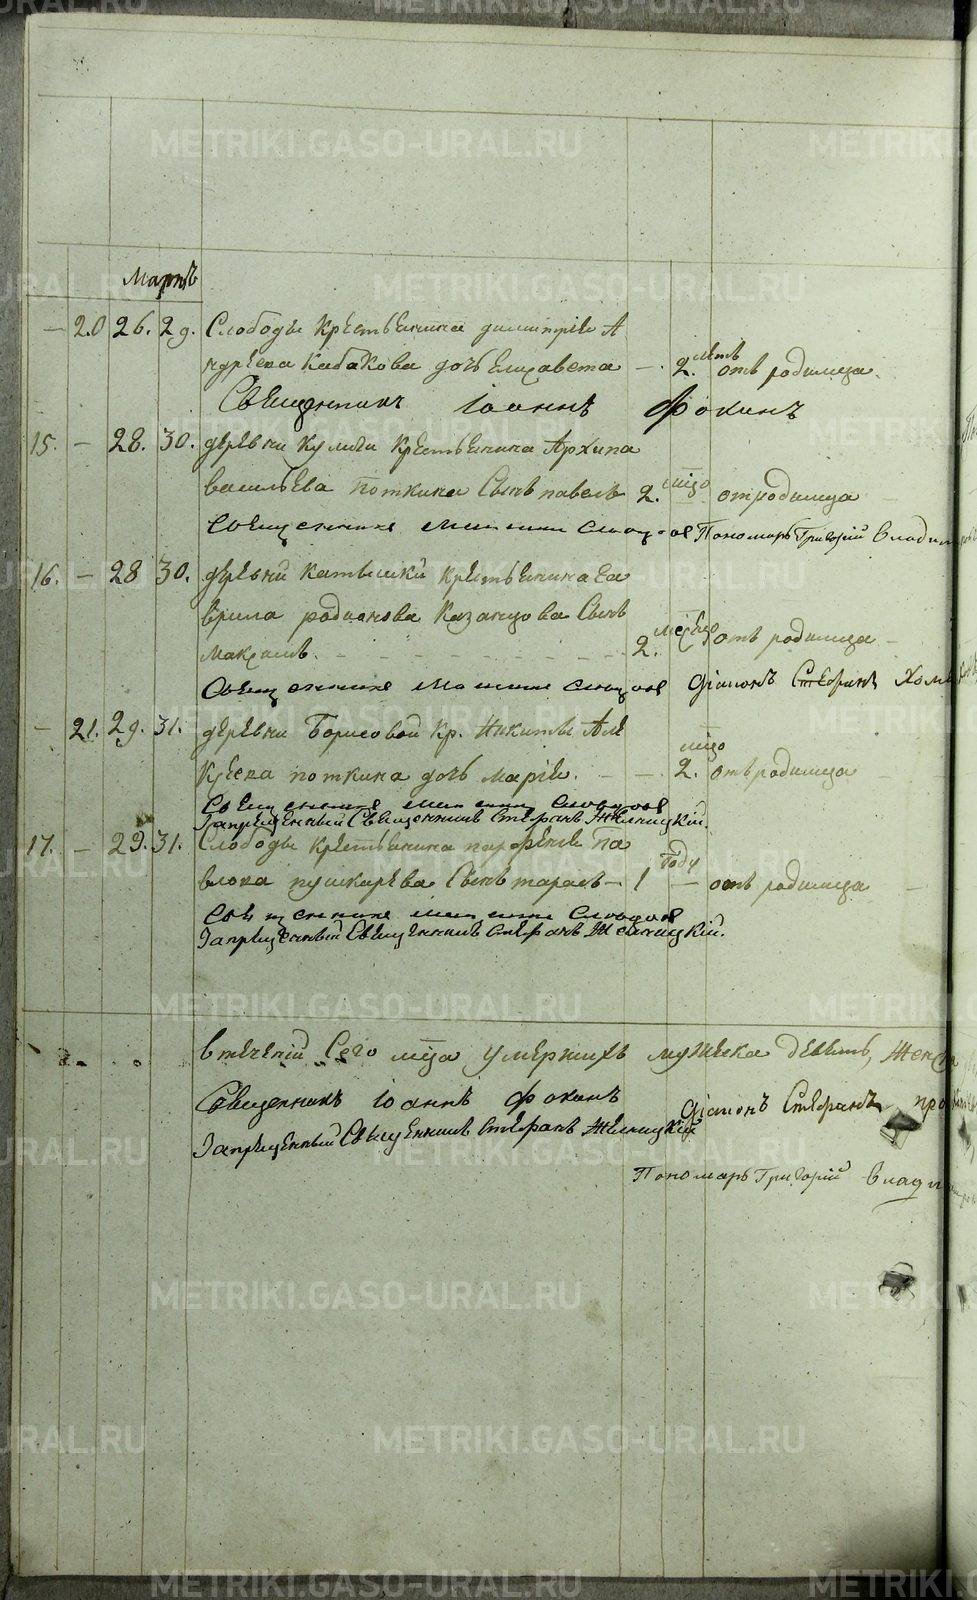 Мартъ
— 20 26. 29. Слободы крестьянина димитрія А
ндреева Кабакова дочь Елисавета — 2. лѣтъ отъ родимца.
Священникъ Іоаннъ Фокинъ
15. — 28. 30. деревни Кулиги крестьянина Архипа
васильева Поткина Сынъ павелъ 2. мцо отродимца
Священникъ Пономарь Григорій Владим
16. — 28 30. деревни Катышки крестьянина Га
врила родионова Казанцова Сынъ
Максимъ. 2. отъ родимца
Священникъ Діаконъ Стефанъ
— 21. 29. 31. деревни Борисовой кр. Никиты Але
ксеева поткина дочь марія. — 2. мцо отъ родимца
Священникъ
Запрещенный Священникъ Стефанъ Желницкій.
17. — 29. 31. Слободы крестьянина парфена Па
влова пушкарева Сынъ тарасъ — 1 году отъ родимца
Священникъ
Запрещенный Священникъ Стефанъ Желницкій.
втеченій Сего мца умершихъ мужеска девять, Женска
Священникъ Іоаннъ Фокинъ Діаконъ Стефанъ
Запрещенный Священникъ Стефанъ Желницкій
Пономарь Григорій Владим
METRIKI.GASO-URAL.RU